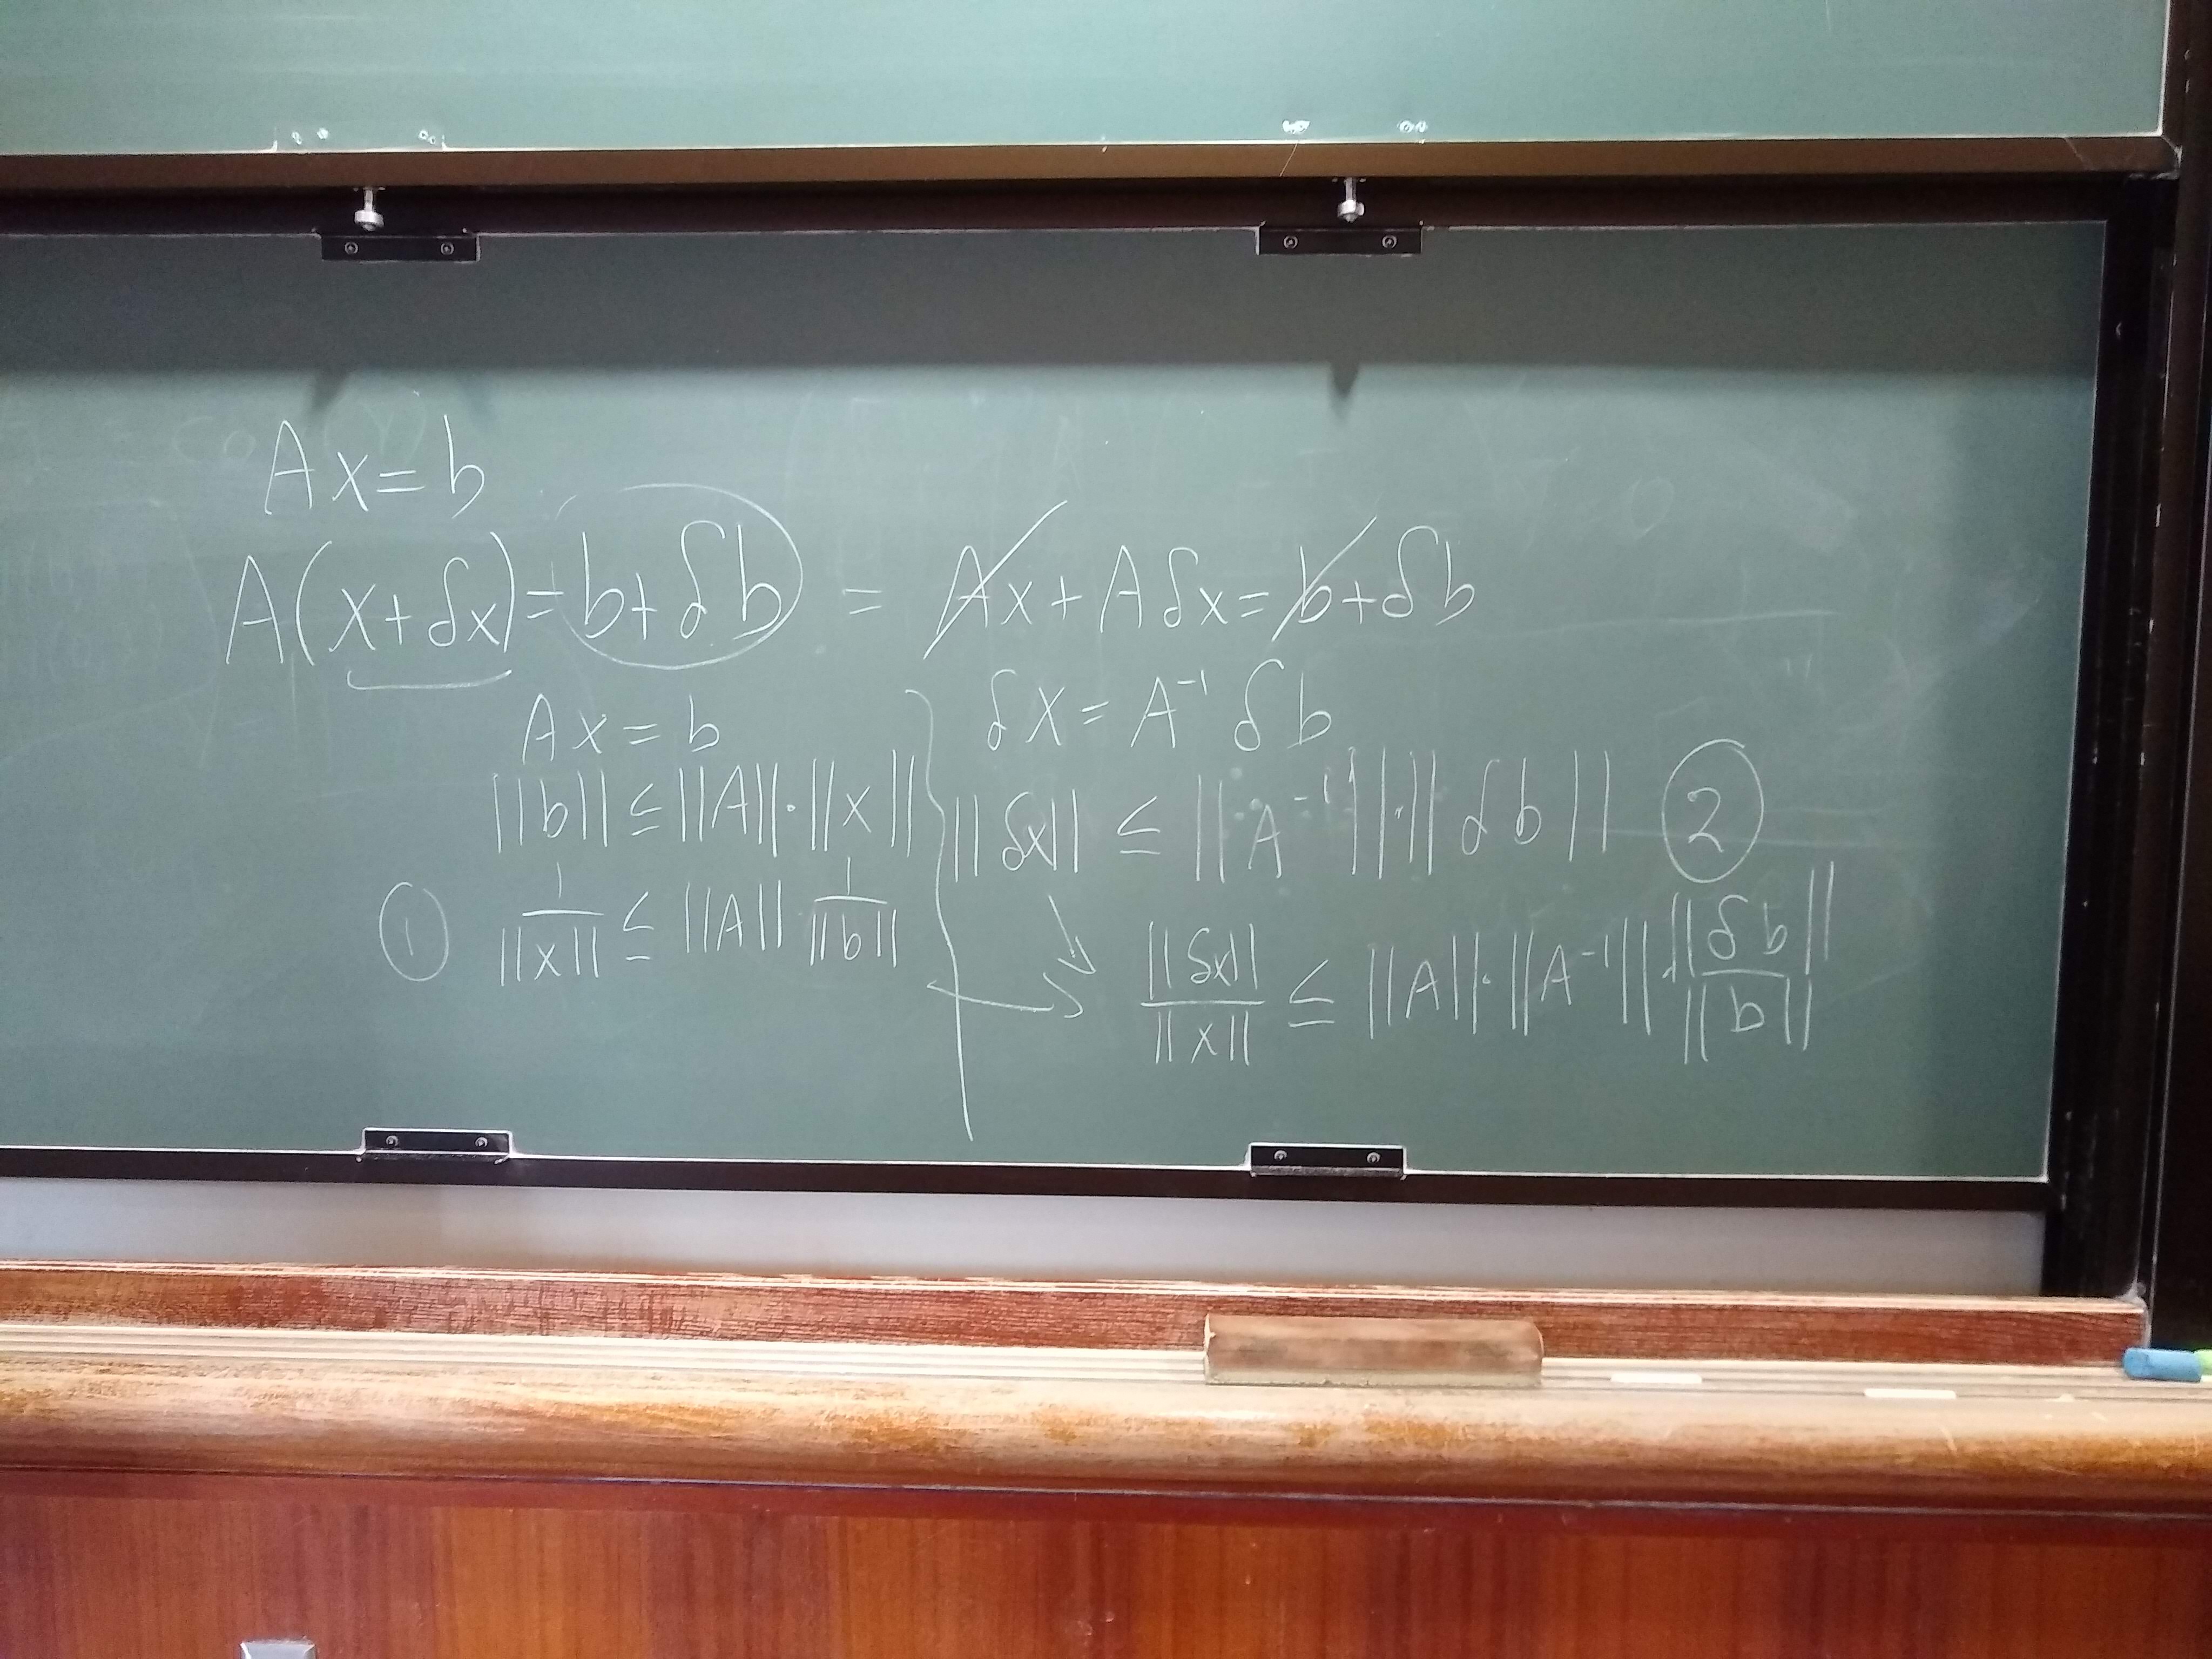 Ax = b
A(x+δx) = b+δb = Ax + Aδx = b + δb
Ax = b
||b|| ≤ ||A||·||x||
① 1/||x|| ≤ ||A|| · 1/||b||
δx = A⁻¹ δb
||δx|| ≤ ||A⁻¹||·||δb|| ②
||δx||/||x|| ≤ ||A||·||A⁻¹||·||δb||/||b||